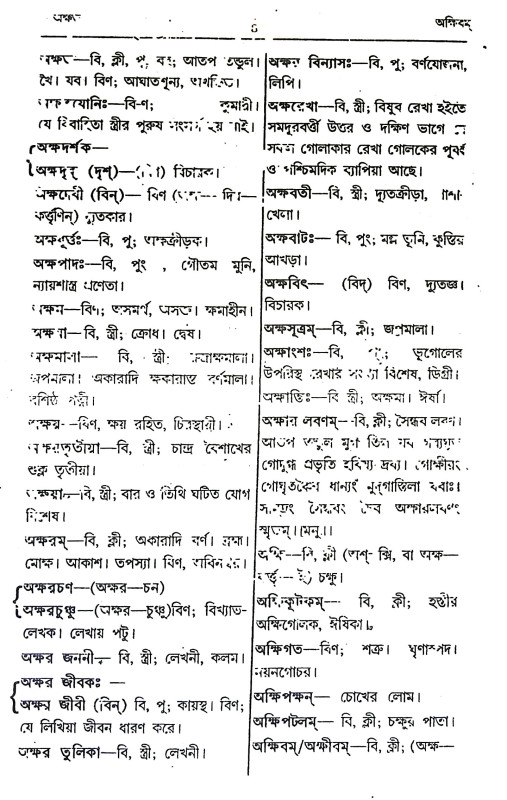 অক্ষত
৪
অক্ষিবম্
অক্ষত—বি, ক্লী, পু, বহু; আতপ তণ্ডুল।
খৈ। যব। বিণ; আঘাতশূন্য,
অক্ষতযোনিঃ—বি-ণ; কুমারী।
যে বিবাহিতা স্ত্রীর পুরুষ সংসর্গ হয় নাই।
অক্ষদর্শক—
অক্ষদৃক্ (দৃশ্)— বিচারক।
অক্ষদেবী (বিন্)— বিণ
কর্ত্তৃণিন্) দ্যুতকার।
অক্ষধূর্ত্তঃ—বি, পু; অক্ষক্রীড়ক।
অক্ষপাদঃ—বি, পুং , গৌতম মুনি,
ন্যায়শাস্ত্র প্রণেতা।
অক্ষম—বিণ; অসমর্থ, অসক্ত। ক্ষমাহীন।
অক্ষমা—বি, স্ত্রী; ক্রোধ। দ্বেষ।
অক্ষমালা— বি, স্ত্রী; রুদ্রাক্ষমালা।
জপমালা। একারাদি ক্ষকারান্ত বর্ণমালা।
বশিষ্ঠ পত্নী।
অক্ষয়—বিণ, ক্ষয় রহিত, চিরস্থায়ী।
অক্ষয়তৃতীয়া—বি, স্ত্রী; চান্দ্র বৈশাখের
শুক্ল তৃতীয়া।
অক্ষয়া—বি, স্ত্রী; বার ও তিথি ঘটিত যোগ
বিশেষ।
অক্ষরম্—বি, ক্লী; অকারাদি বর্ণ। ব্রহ্ম।
মোক্ষ। আকাশ। তপস্যা। বিণ, অবিনশ্বর।
অক্ষরচণ—(অক্ষর—চন)
অক্ষরচুঞ্চু—(অক্ষর—চুঞ্চু)বিণ; বিখ্যাত-
লেখক। লেখায় পটু।
অক্ষর জননী— বি, স্ত্রী; লেখনী, কলম।
অক্ষর জীবকঃ —
অক্ষর জীবী (বিন্) বি, পু; কায়স্থ। বিণ;
যে লিখিয়া জীবন ধারণ করে।
অক্ষর তুলিকা—বি, স্ত্রী; লেখনী।
অক্ষর বিন্যাসঃ—বি, পু; বর্ণযোজনা,
লিপি।
অক্ষরেখা—বি, স্ত্রী; বিষুব রেখা হইতে
সমদূরবর্ত্তী উত্তর ও দক্ষিণ ভাগে
সকল গোলাকার রেখা গোলকের পূর্ব্ব
ও পশ্চিমদিক ব্যাপিয়া আছে।
অক্ষবতী—বি, স্ত্রী; দ্যুতক্রীড়া, পাশা
খেলা।
অক্ষবাটঃ— বি, পুং; মল্ল ভূমি, কুস্তির
আখড়া।
অক্ষবিৎ— (বিদ্) বিণ, দ্যুতজ্ঞ।
বিচারক।
অক্ষসূত্রম্—বি, ক্লী; জপমালা।
অক্ষাংশঃ—বি, পু; ভূগোলের
উপরিস্থ রেখার সংখ্যা বিশেষ, ডিগ্রী।
অক্ষান্তিঃ—বি স্ত্রী; অক্ষমা। ঈর্ষা।
অক্ষার লবণম্—বি, ক্লী; সৈন্ধব লবণ।
আতপ তণ্ডুল মুগ তিল যব
গোদুগ্ধ প্রভৃতি হবিষ্য দ্রব্য। গোক্ষীরং
গোঘৃতঞ্চৈব ধান্যং মুদ্গাস্তিলা যবাঃ।
সামুদ্রং সৈন্ধবং চৈব অক্ষারলবণং
স্মৃতম্। (মনু।।
অক্ষি—বি, ক্লী (অশ্- ক্সি, বা অক্ষ—
চক্ষু।
অক্ষিকূটকম্— বি, ক্লী; হস্তীর
অক্ষিগোলক, ঈষিকা।
অক্ষিগত—বিণ; শত্রু। ঘৃণাস্পদ।
নয়নগোচর।
অক্ষিপক্ষন্— চোখের লোম।
অক্ষিপটলম্— বি, ক্লী; চক্ষুর পাতা।
অক্ষিবম্/অক্ষীবম্—বি, ক্লী; (অক্ষ—